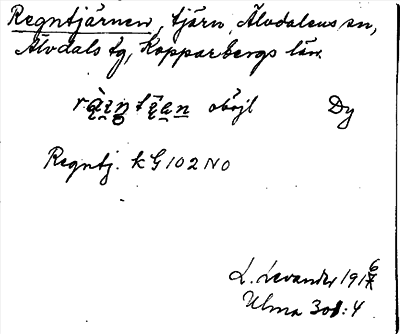 Regntjärnen, tjärn, Älvdalens sn,
Älvdals tg, Kopparbergs län.
oböjl Dy
Regntj. kG 102 NO
L. Levander 191
Ulma 301:4